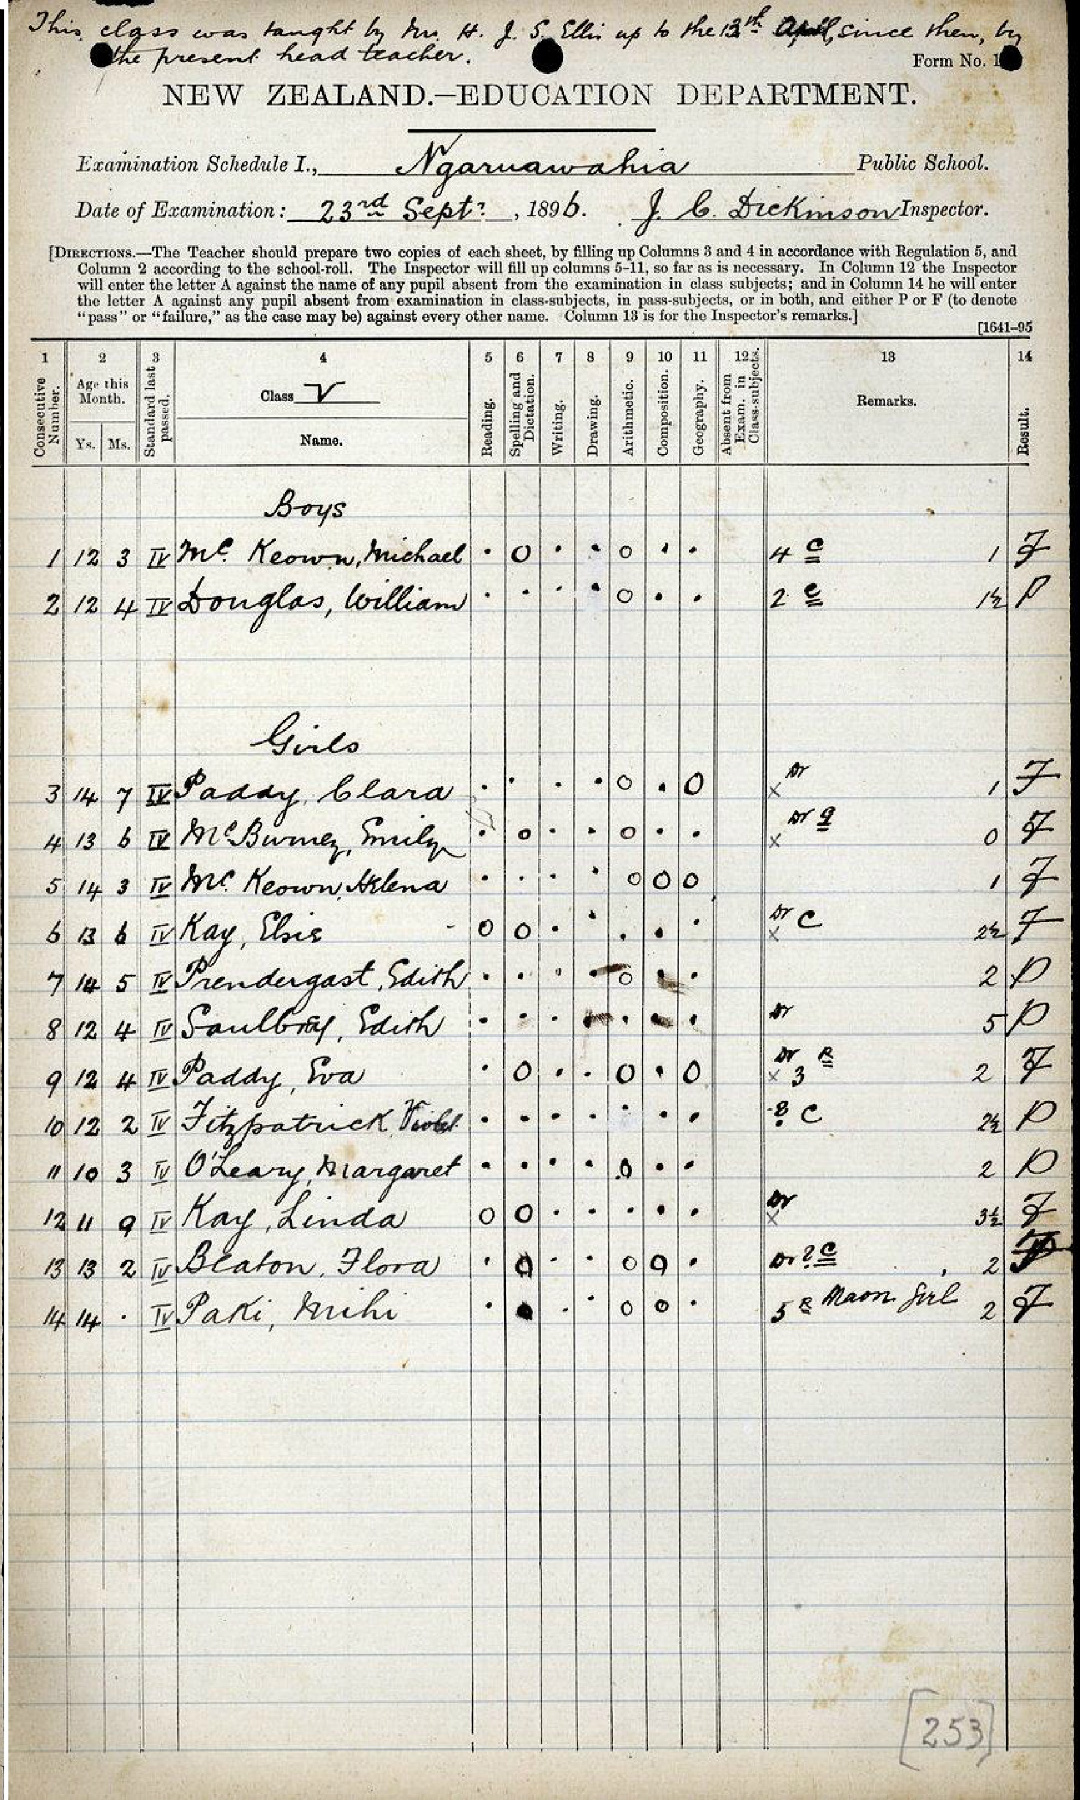 This class was taught by Mr. H. J. S. Ellis up to the 13th April, since then, by
the present head teacher.
Form No. 1
NEW ZEALAND.—EDUCATION DEPARTMENT.
Examination Schedule I., Ngaruawahia Public School.
Date of Examination: 23rd Sept., 1896. J. C. Dickinson Inspector.
[DIRECTIONS.—The Teacher should prepare two copies of each sheet, by filling up Columns 3 and 4 in accordance with Regulation 5, and
Column 2 according to the school-roll. The Inspector will fill up columns 5-11, so far as is necessary. In Column 12 the Inspector
will enter the letter A against the name of any pupil absent from the examination in class subjects; and in Column 14 he will enter
the letter A against any pupil absent from examination in class-subjects, in pass-subjects, or in both, and either P or F (to denote
“pass” or “failure,” as the case may be) against every other name. Column 13 is for the Inspector's remarks.]
[1641–95
1 2 3 4 5 6 7 8 9 10 11 12 13 14
Consecutive Number.
Age this Month.
Ys. Ms.
Standard last passed.
Class V
Name.
Reading.
Spelling and Dictation.
Writing.
Drawing.
Arithmetic.
Composition.
Geography.
Absent from Exam. in Class-subjects.
Remarks.
Result.
Boys
1 12 3 IV McKeown, Michael · o · · o · · 4 C 1 F
2 12 4 IV Douglas, William · · · · o · · 2 C 1½ P
Girls
3 14 7 IV Paddy, Clara · · · · o · o Dr x 1 F
4 13 6 IV McBurney, Emily · o · · o · · Dr g x 0 F
5 14 3 IV McKeown, Helena · · · · o o o 1 F
6 13 6 IV Kay, Elsie o o · · · · · Dr C x 2½ F
7 14 5 IV Prendergast, Edith · · · · o · · 2 P
8 12 4 IV Saulbrey, Edith · · · · · · · Dr 5 P
9 12 4 IV Paddy, Eva · o · · o · o Dr x 3 R 2 F
10 12 2 IV Fitzpatrick, Violet · · · · · · · C 2½ P
11 10 3 IV O'Leary, Margaret · · · · o · · 2 P
12 11 9 IV Kay, Linda o o · · · · · Dr x 3½ F
13 13 2 IV Beaton, Flora · o · · o o · Dr ? C 2
14 14 · IV Paki, Mihi · · · o o · 5 R Maori Girl 2 F
[253]